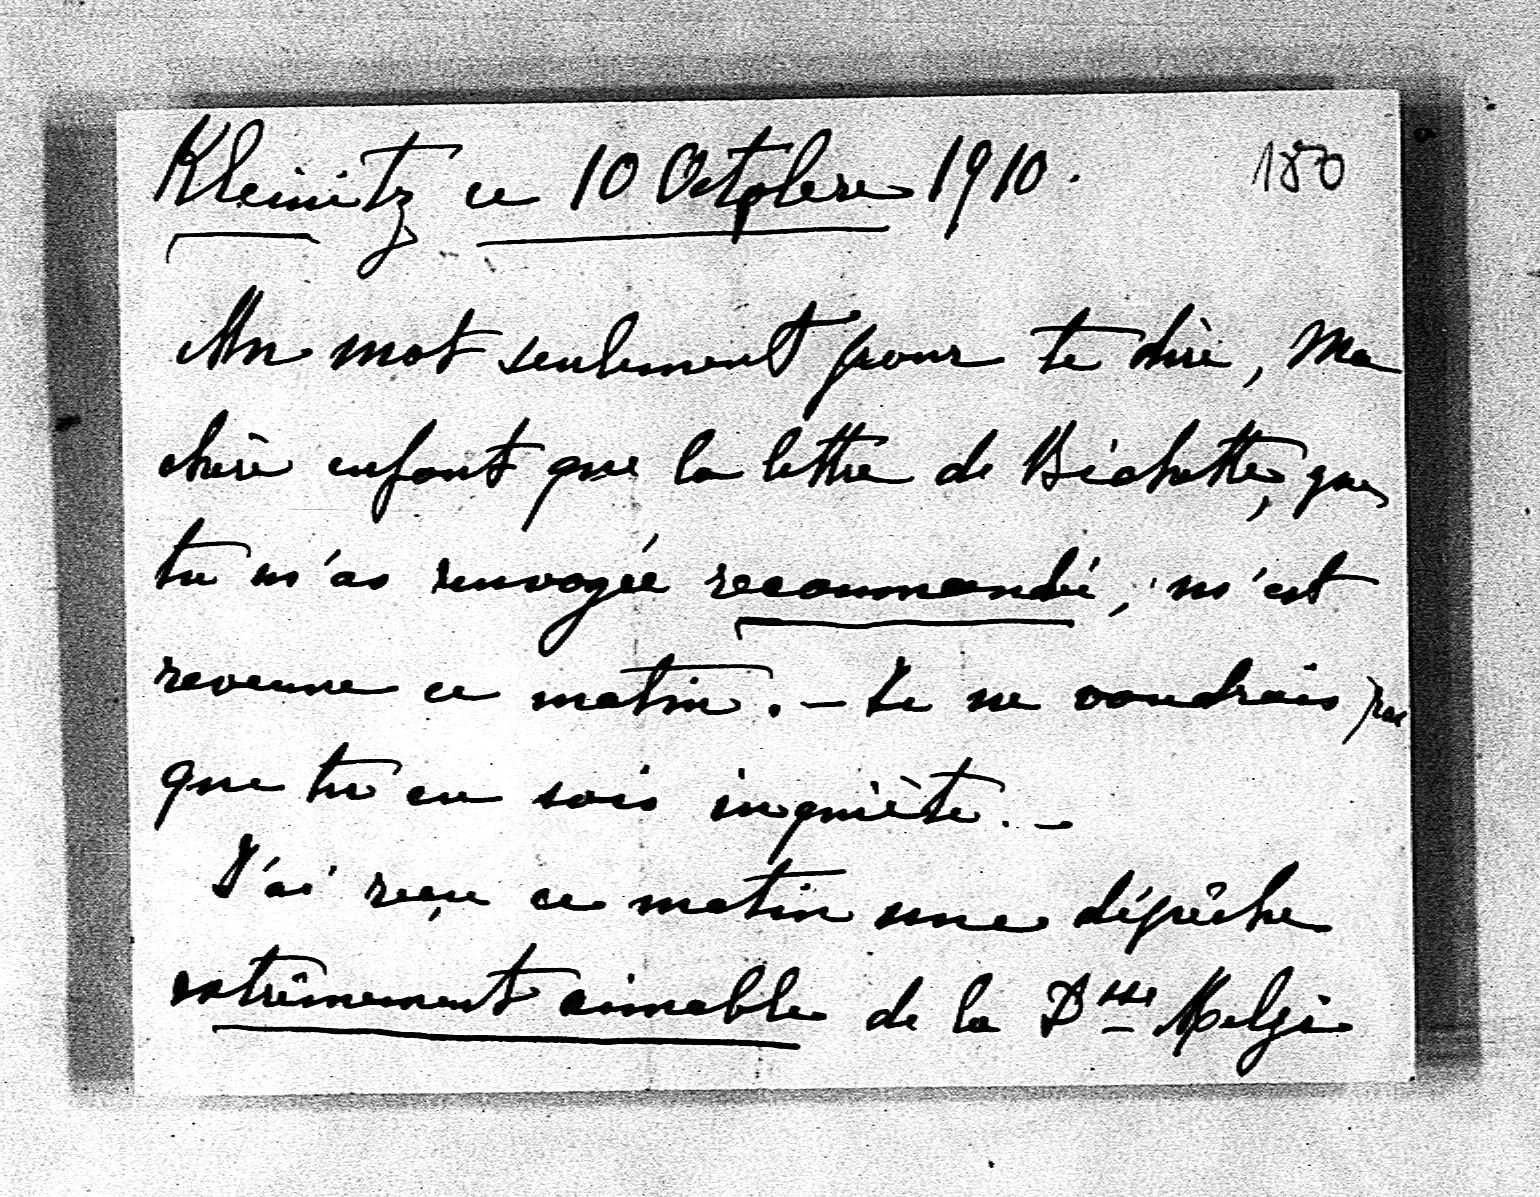 Kleinitz ce 10 Octobre 1910. 180
Un mot seulement pour te dire, Ma
chère enfant que la lettre de Bichette, que
tu m'as renvoyée recommandé, m'est
revenue ce matin. — Je ne voudrais pas
que tu en sois inquiète. —
J'ai reçu ce matin une dépêche
extrêmement aimable de la Dsse Melzi